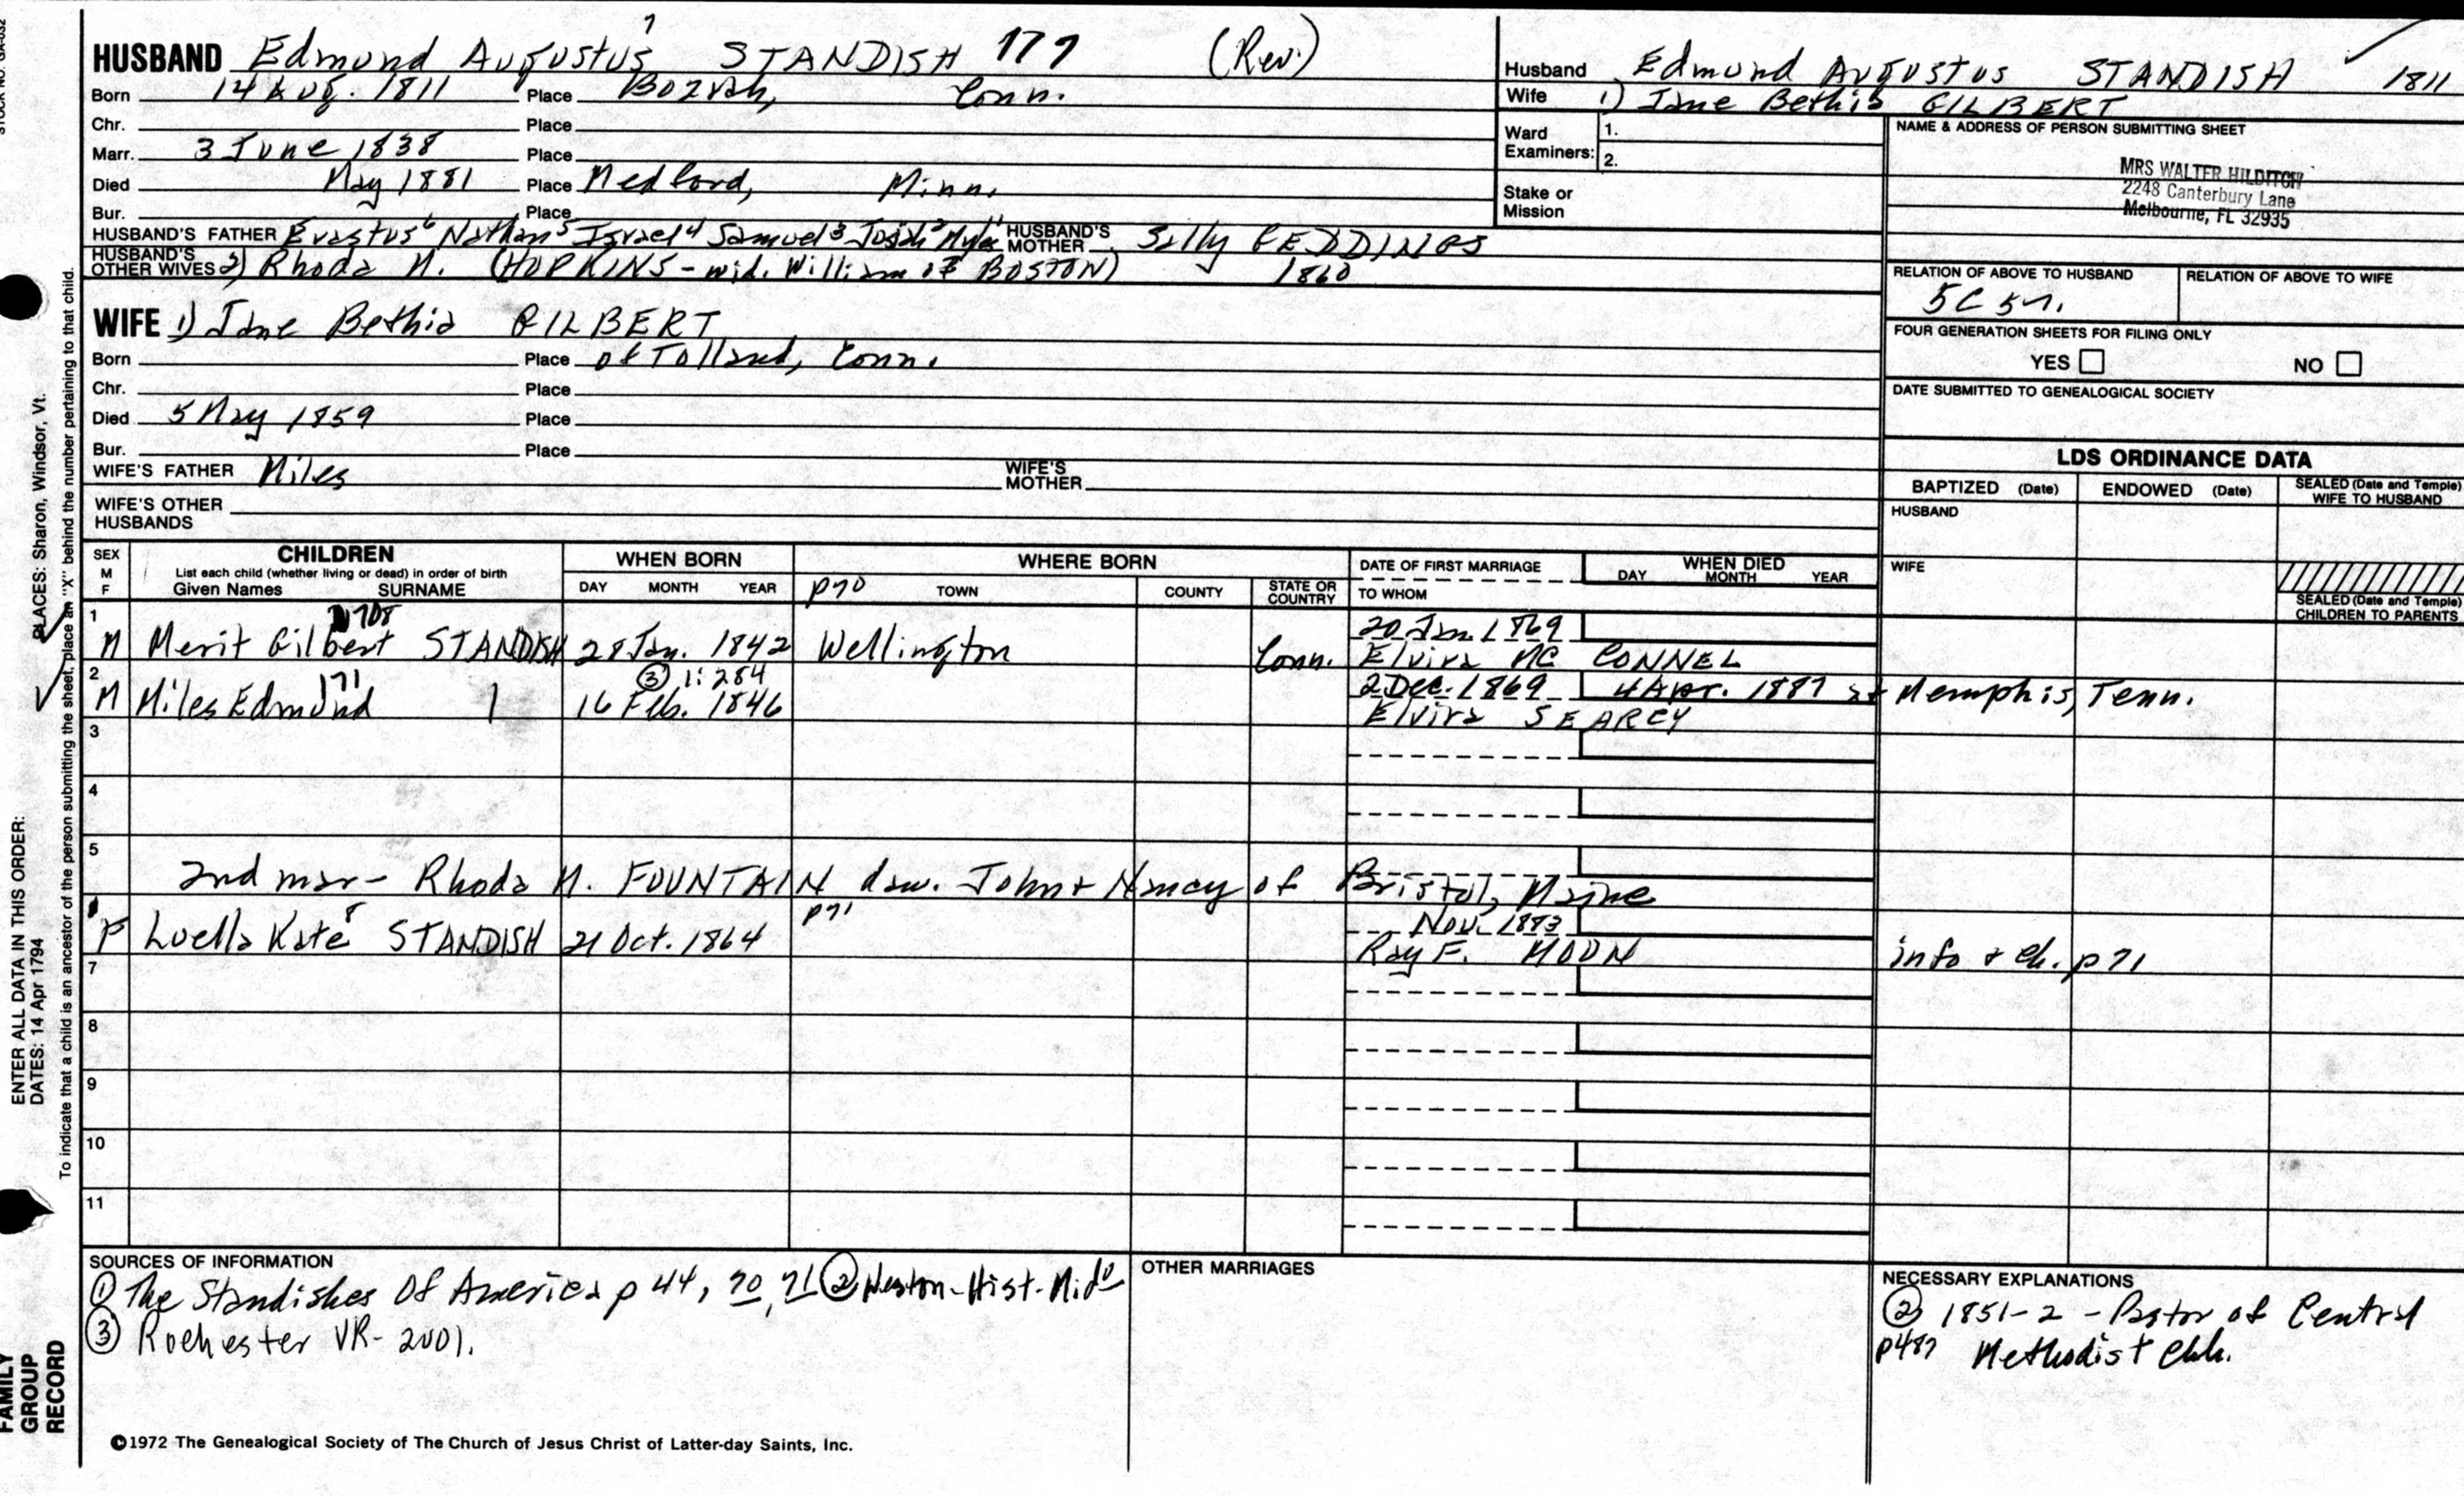 HUSBAND Edmund Augustus 7 STANDISH 177 (Rev.)
Born 14 Aug. 1811 Place Bozrah, Conn.
Chr. Place
Marr. 3 June 1838 Place
Died May 1881 Place Medford, Minn.
Bur. Place
HUSBAND'S FATHER Erastus6 Nathan5 Israel4 Samuel3 Josiah2 Myles1 HUSBAND'S MOTHER Sally GEDDINGS
HUSBAND'S OTHER WIVES 2) Rhoda M. (HOPKINS - wid. William of BOSTON) 1860
Husband Edmund Augustus STANDISH 1811
Wife 1) Jane Bethia GILBERT
Ward Examiners: 1.
2.
Stake or Mission
NAME & ADDRESS OF PERSON SUBMITTING SHEET
MRS WALTER HILDITCH
2248 Canterbury Lane
Melbourne, FL 32935
RELATION OF ABOVE TO HUSBAND RELATION OF ABOVE TO WIFE
5C 5r.
FOUR GENERATION SHEETS FOR FILING ONLY
YES NO
DATE SUBMITTED TO GENEALOGICAL SOCIETY
WIFE 1) Jane Bethia GILBERT
Born Place of Tolland, Conn.
Chr. Place
Died 5 May 1859 Place
Bur. Place
WIFE'S FATHER Miles WIFE'S MOTHER
WIFE'S OTHER HUSBANDS
LDS ORDINANCE DATA
BAPTIZED (Date) ENDOWED (Date) SEALED (Date and Temple) WIFE TO HUSBAND
HUSBAND
WIFE
SEALED (Date and Temple) CHILDREN TO PARENTS
SEX M F CHILDREN WHEN BORN WHERE BORN DATE OF FIRST MARRIAGE WHEN DIED
List each child (whether living or dead) in order of birth
Given Names SURNAME DAY MONTH YEAR p70 TOWN COUNTY STATE OR COUNTRY TO WHOM DAY MONTH YEAR
1 M Merit Gilbert STANDISH 28 Jan. 1842 Wellington Conn. 20 Jan. 1869
Elvira MC CONNEL
③ 1:284
2 M Miles Edmund 171 16 Feb. 1846 2 Dec. 1869 4 Apr. 1887 at Memphis, Tenn.
Elvira SEARCY
3
4
5
2nd mar - Rhoda M. FOUNTAIN dau. John + Nancy of Bristol, Maine
F Luella Kate8 STANDISH 21 Oct. 1864 p71 Nov. 1883
Ray F. MOON info + ch. p71
7
8
9
10
11
SOURCES OF INFORMATION
① The Standishes Of America p 44, 70, 71 ② Weston-Hist-Mido
③ Rochester VR- 2001.
OTHER MARRIAGES
NECESSARY EXPLANATIONS
② 1851-2 - Pastor of Central
p487 Methodist Chh.
©1972 The Genealogical Society of The Church of Jesus Christ of Latter-day Saints, Inc.
ENTER ALL DATA IN THIS ORDER:
DATES: 14 Apr 1794 PLACES: Sharon, Windsor, Vt.
To indicate that a child is an ancestor of the person submitting the sheet, place an "X" behind the number pertaining to that child.
FAMILY
GROUP
RECORD